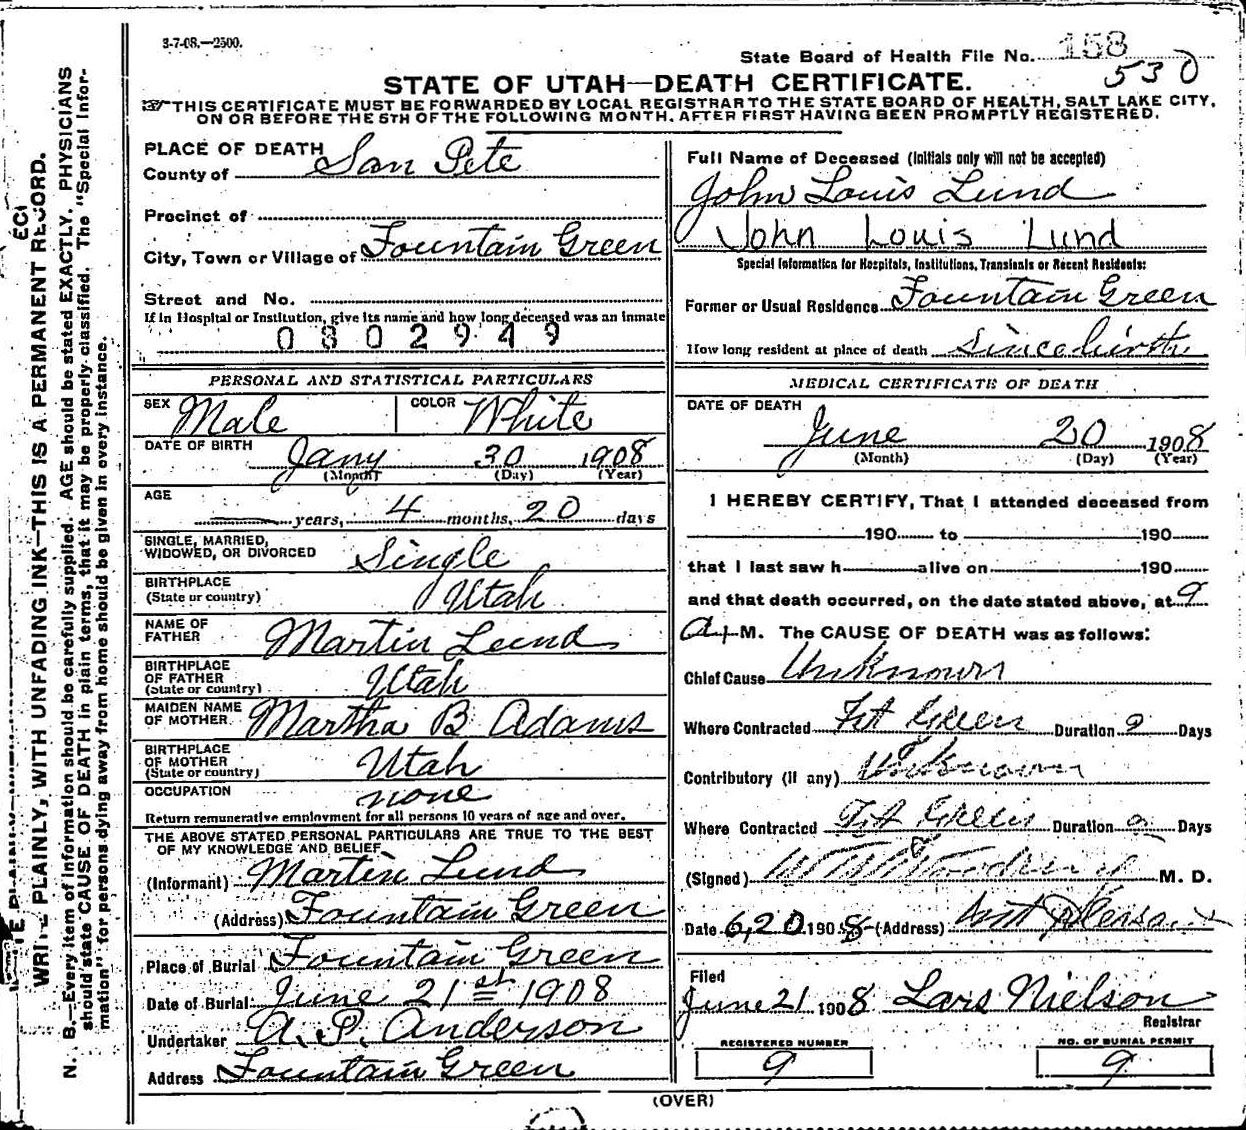 3-7-08.—2500.
State Board of Health File No. 158
530
STATE OF UTAH—DEATH CERTIFICATE.
☞THIS CERTIFICATE MUST BE FORWARDED BY LOCAL REGISTRAR TO THE STATE BOARD OF HEALTH, SALT LAKE CITY,
ON OR BEFORE THE 5TH OF THE FOLLOWING MONTH, AFTER FIRST HAVING BEEN PROMPTLY REGISTERED.
WRITE PLAINLY, WITH UNFADING INK—THIS IS A PERMANENT RECORD.
N. B.—Every item of information should be carefully supplied. AGE should be stated EXACTLY. PHYSICIANS
should state CAUSE OF DEATH in plain terms, that it may be properly classified. The "Special Infor-
mation" for persons dying away from home should be given in every instance.
PLACE OF DEATH
County of San Pete
Precinct of
City, Town or Village of Fountain Green
Street and No.
If in Hospital or Institution, give its name and how long deceased was an inmate
0802949
PERSONAL AND STATISTICAL PARTICULARS
SEX Male COLOR White
DATE OF BIRTH Jany 30 1908
(Month) (Day) (Year)
AGE
— years, 4 months, 20 days
SINGLE, MARRIED,
WIDOWED, OR DIVORCED Single
BIRTHPLACE
(State or country) Utah
NAME OF
FATHER Martin Lund
BIRTHPLACE
OF FATHER
(State or country) Utah
MAIDEN NAME
OF MOTHER Martha B Adams
BIRTHPLACE
OF MOTHER
(State or country) Utah
OCCUPATION none
Return remunerative employment for all persons 10 years of age and over.
THE ABOVE STATED PERSONAL PARTICULARS ARE TRUE TO THE BEST
OF MY KNOWLEDGE AND BELIEF
(Informant) Martin Lund
(Address) Fountain Green
Place of Burial Fountain Green
Date of Burial June 21st 1908
Undertaker A. P. Anderson
Address Fountain Green
Full Name of Deceased (Initials only will not be accepted)
John Louis Lund
John Louis Lund
Special Information for Hospitals, Institutions, Transients or Recent Residents:
Former or Usual Residence Fountain Green
How long resident at place of death Since birth
MEDICAL CERTIFICATE OF DEATH
DATE OF DEATH
June 20 1908
(Month) (Day) (Year)
I HEREBY CERTIFY, That I attended deceased from
190 to 190
that I last saw h alive on 190
and that death occurred, on the date stated above, at 9
A. M. The CAUSE OF DEATH was as follows:
Chief Cause Unknown
Where Contracted Ft Green Duration ? Days
Contributory (if any) Unknown
Where Contracted Ft Green Duration Days
(Signed) M. D.
Date 6,20 1908 (Address)
Filed
June 21 1908 Lars Nielson
Registrar
REGISTERED NUMBER
9
NO. OF BURIAL PERMIT
9
(OVER)